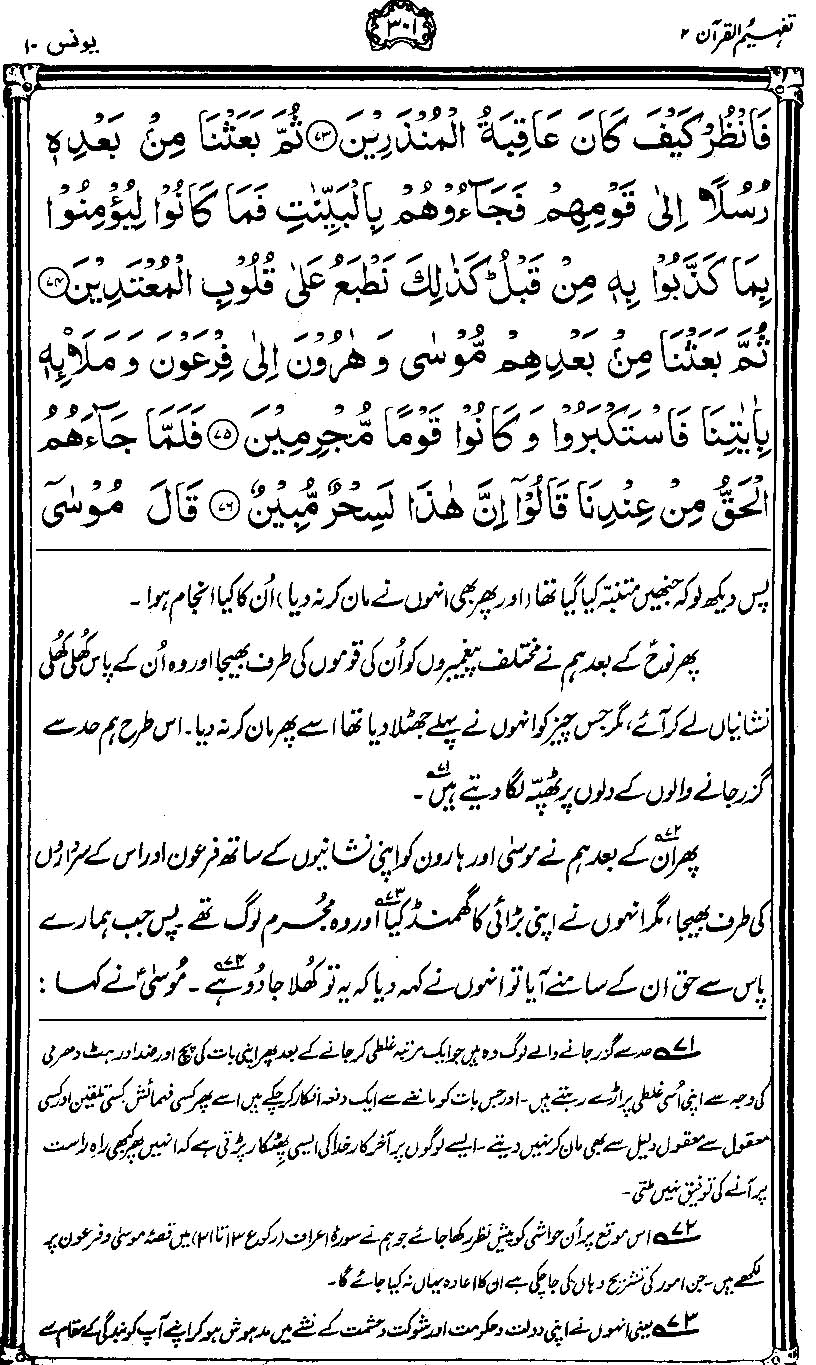 تفہیم القرآن ۲
۳۰۱
یونس ۱۰
فَانْظُرْ كَیْفَ كَانَ عَاقِبَةُ الْمُنْذَرِیْنَ ﴿۷۳﴾ ثُمَّ بَعَثْنَا مِنْۢ بَعْدِهٖ
رُسُلًا اِلٰى قَوْمِهِمْ فَجَآءُوْهُمْ بِالْبَیِّنٰتِ فَمَا كَانُوْا لِیُؤْمِنُوْا
بِمَا كَذَّبُوْا بِهٖ مِنْ قَبْلُ ؕ كَذٰلِكَ نَطْبَعُ عَلٰى قُلُوْبِ الْمُعْتَدِیْنَ ﴿۷۴﴾
ثُمَّ بَعَثْنَا مِنْۢ بَعْدِهِمْ مُّوْسٰى وَ هٰرُوْنَ اِلٰى فِرْعَوْنَ وَ مَلَا۠ىِٕهٖ
بِاٰیٰتِنَا فَاسْتَكْبَرُوْا وَ كَانُوْا قَوْمًا مُّجْرِمِیْنَ ﴿۷۵﴾ فَلَمَّا جَآءَهُمُ
الْحَقُّ مِنْ عِنْدِنَا قَالُوْۤا اِنَّ هٰذَا لَسِحْرٌ مُّبِیْنٌ ﴿۷۶﴾ قَالَ مُوْسٰۤى
پس دیکھ لو کہ جنھیں متنبّہ کیا گیا تھا (اور پھر بھی انہوں نے مان کر نہ دیا) اُن کا کیا انجام ہوا۔
پھر نوحؑ کے بعد ہم نے مختلف پیغمبروں کو اُن کی قوموں کی طرف بھیجا اور وہ اُن کے پاس کھُلی کھُلی
نشانیاں لے کر آئے، مگر جس چیز کو انہوں نے پہلے جھٹلا دیا تھا اسے پھر مان کر نہ دیا۔ اس طرح ہم حد سے
گزر جانے والوں کے دلوں پر ٹھپّہ لگا دیتے ہیں۷۱۔
پھر۷۲ اُن کے بعد ہم نے موسیٰ اور ہارون کو اپنی نشانیوں کے ساتھ فرعون اور اس کے سرداروں
کی طرف بھیجا، مگر انہوں نے اپنی بڑائی کا گھمنڈ کیا۷۳ اور وہ مجُرم لوگ تھے۔ پس جب ہمارے
پاس سے حق ان کے سامنے آیا تو انہوں نے کہہ دیا کہ یہ تو کھُلا جادُو ہے۷۴۔ مُوسیٰؑ نے کہا:
۷۱؎ حد سے گزر جانے والے لوگ وہ ہیں جو ایک مرتبہ غلطی کر جانے کے بعد پھر اپنی بات کی پچ اور ضد اور ہٹ دھرمی
کی وجہ سے اپنی اُسی غلطی پر اڑے رہتے ہیں۔ اور جس بات کو ماننے سے ایک دفعہ انکار کر چکے ہیں اسے پھر کسی فہمائش کسی تلقین اور کسی
معقول سے معقول دلیل سے بھی مان کر نہیں دیتے۔ ایسے لوگوں پر آخر کار خدا کی ایسی پھِٹکار پڑتی ہے کہ انہیں پھر کبھی راہِ راست
پر آنے کی توفیق نہیں ملتی۔
۷۲؎ اس موقع پر اُن حواشی کو پیشِ نظر رکھا جائے جو ہم نے سورۂ اعراف (رکوع ۱۳ تا ۲۱) میں قصۂ موسیٰ و فرعون پر
لکھے ہیں۔ جن امور کی تشریح وہاں کی جا چکی ہے ان کا اعادہ یہاں نہ کیا جائے گا۔
۷۳؎ یعنی انہوں نے اپنی دولت و حکومت اور شوکت و حشمت کے نشے میں مدہوش ہو کر اپنے آپ کو بندگی کے مقام سے